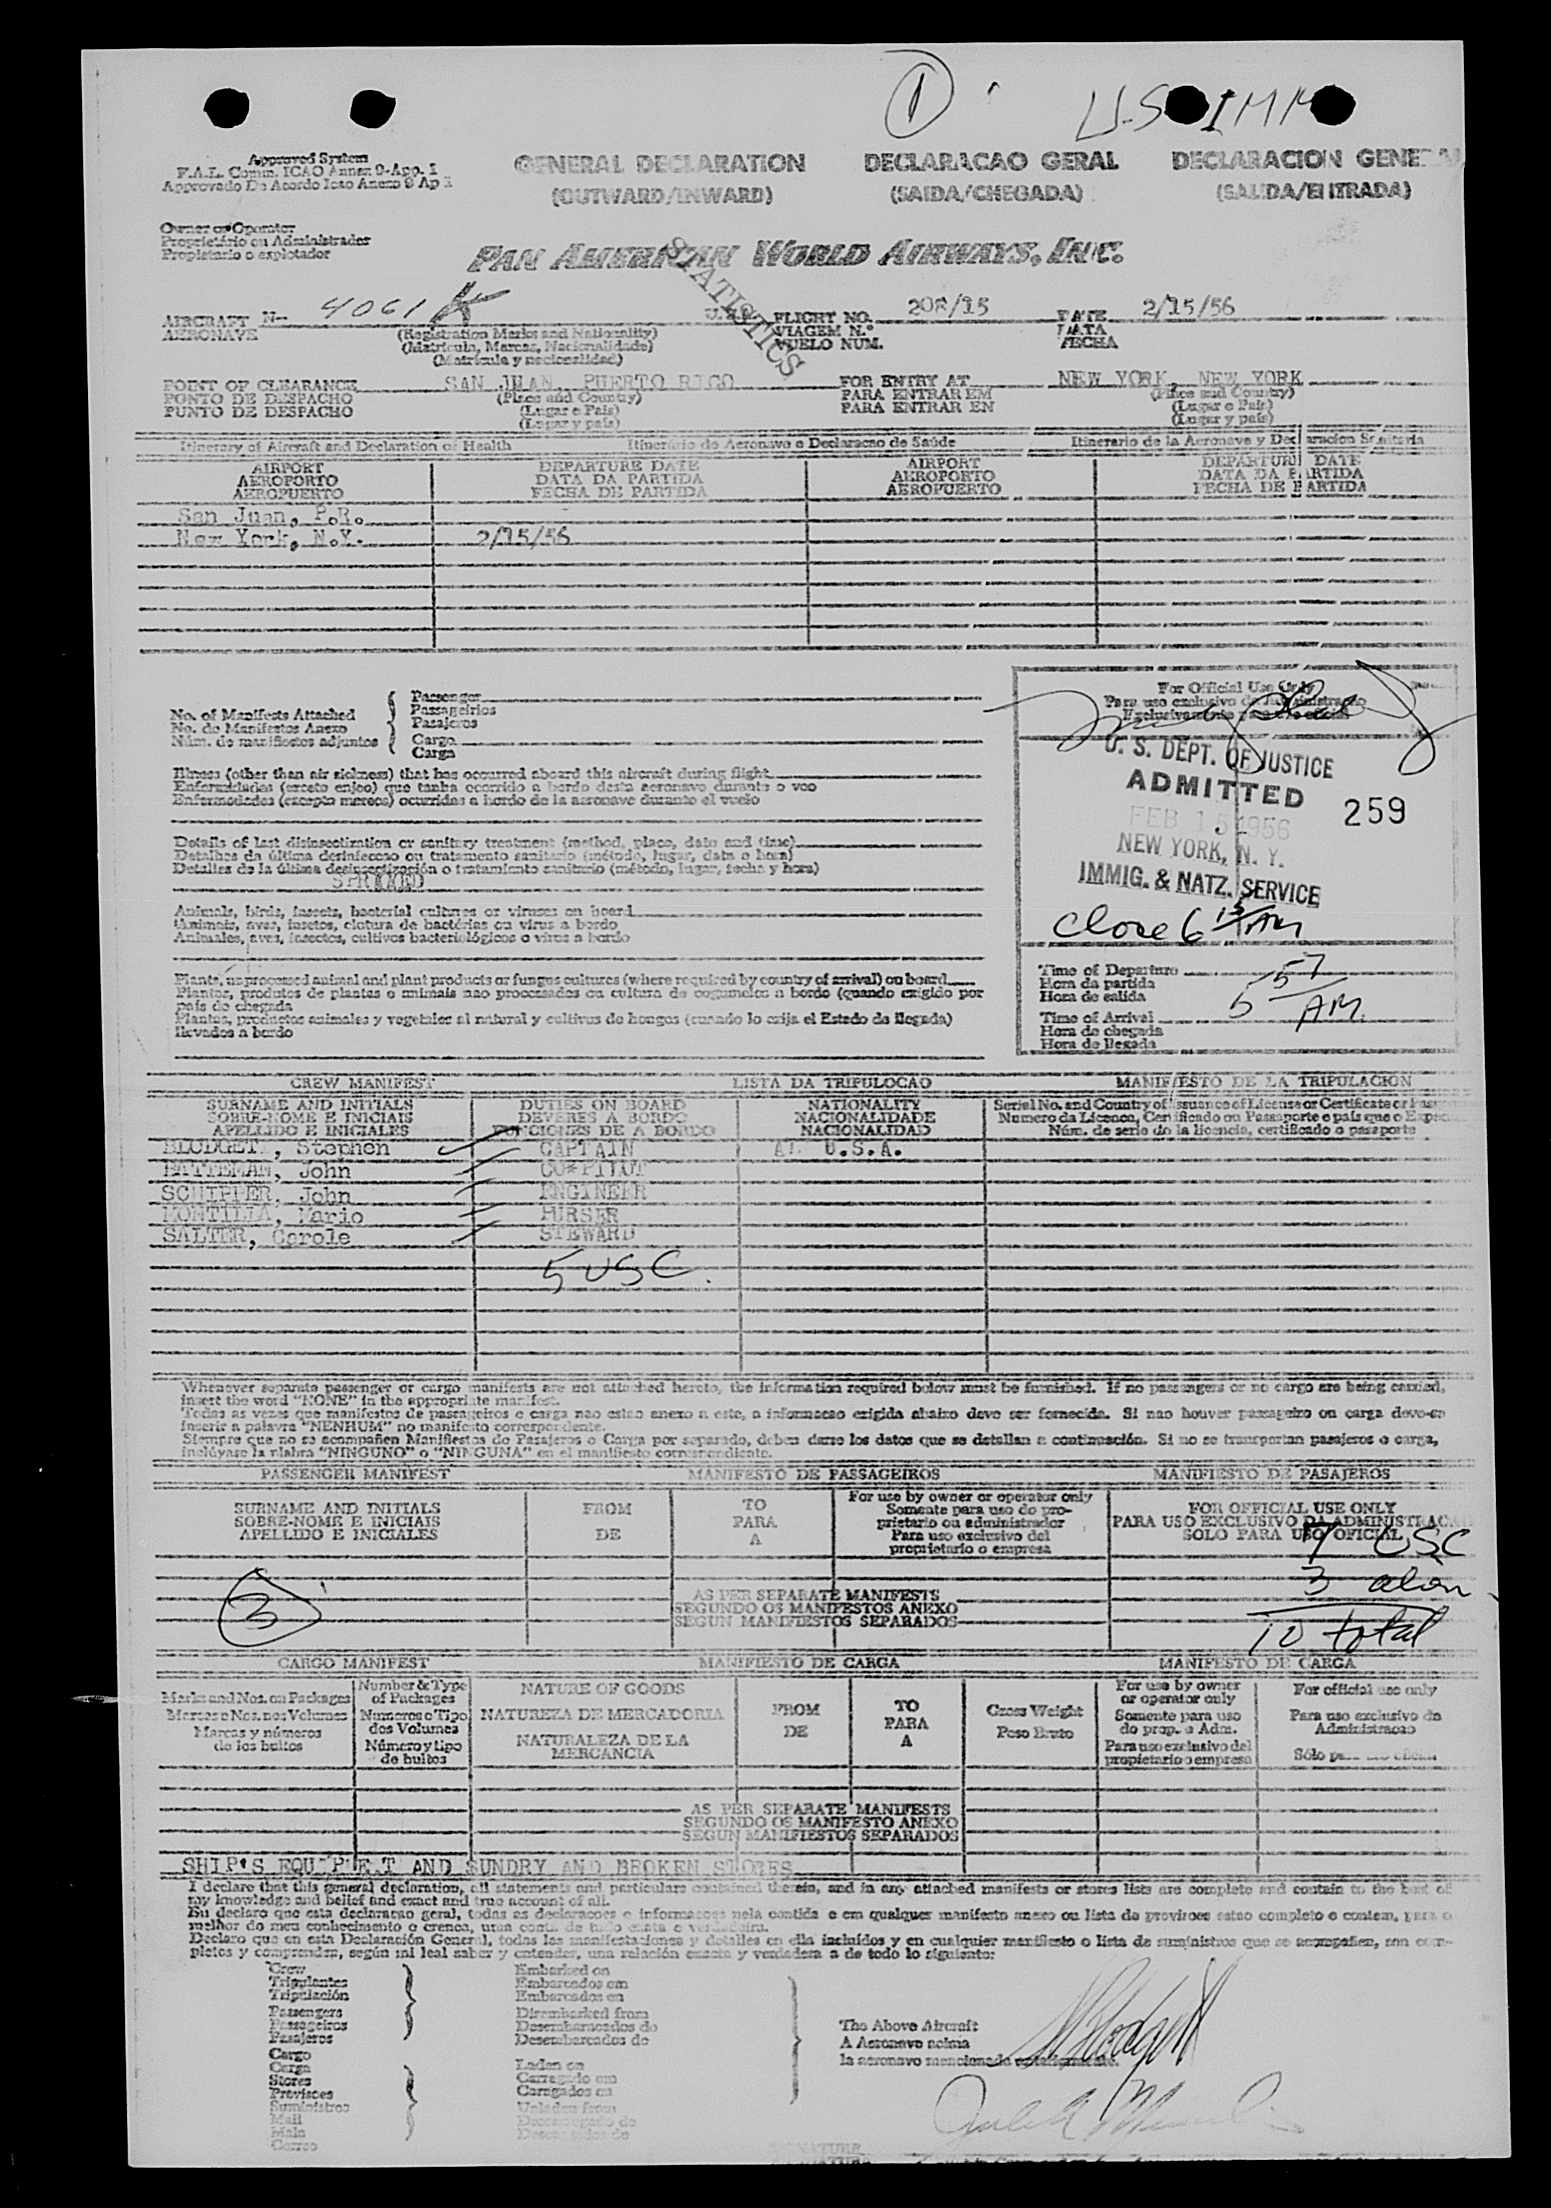 1
U.S. IMM
Approved System
F.A.L. Comm. ICAO Annex 9-App. 1
Approvado De Acordo Icao Anexo 9 Ap 1
GENERAL DECLARATION
(OUTWARD/INWARD)
DECLARACAO GERAL
(SAIDA/CHEGADA)
DECLARACION GENERAL
(SALIDA/ENTRADA)
Owner or Operator
Proprietário ou Administrador
Propietario o explotador
PAN AMERICAN WORLD AIRWAYS, INC.
STATISTICS
AIRCRAFT N- 4061K
AERONAVE
(Registration Marks and Nationality)
(Matricula, Marcas, Nacionalidade)
(Matricula y nacionalidad)
FLIGHT NO. 208/15
VIAGEM N.º
VUELO NUM.
DATE 2/15/56
DATA
FECHA
POINT OF CLEARANCE SAN JUAN, PUERTO RICO
PONTO DE DESPACHO
PUNTO DE DESPACHO
(Place and Country)
(Lugar e Pais)
(Lugar y pais)
FOR ENTRY AT NEW YORK, NEW YORK
PARA ENTRAR EM
PARA ENTRAR EN
(Place and Country)
(Lugar e Pais)
(Lugar y pais)
Itinerary of Aircraft and Declaration of Health
Itinerário de Aeronave e Declaracao de Saúde
Itinerario de la Aeronave y Declaracion Sanitaria
AIRPORT
AEROPORTO
AEROPUERTO
DEPARTURE DATE
DATA DA PARTIDA
FECHA DE PARTIDA
AIRPORT
AEROPORTO
AEROPUERTO
DEPARTURE DATE
DATA DA PARTIDA
FECHA DE PARTIDA
San Juan, P.R.
New York, N.Y. 2/15/56
No. of Manifests Attached
No. de Manifestos Anexo
Núm. de manifiestos adjuntos
Passenger
Passageirios
Pasajeros
Cargo
Carga
Illness (other than air sickness) that has occurred aboard this aircraft during flight
Enfermidades (exceto enjoo) que tenha ocorrido a bordo desta aeronave durante o voo
Enfermedades (excepto mareos) ocurridas a bordo de la aeronave durante el vuelo
Details of last disinsectization or sanitary treatment (method, place, date and time)
Detalhes da última desinfeccao ou tratamento sanitario (método, lugar, data e hora)
Detalles de la última desinsectización o tratamiento sanitario (método, lugar, fecha y hora)
Animals, birds, insects, bacterial cultures or viruses on board
Animais, aves, insetos, clotura de bactérias ou virus a bordo
Animales, aves, insectos, cultivos bacteriológicos o virus a bordo
Plants, unprocessed animal and plant products or fungus cultures (where required by country of arrival) on board
Plantas, produtos de plantas e animais nao processados ou cultura de cogumelos a bordo (quando exigido por
pais de chegada
Plantas, productos animales y vegetales al natural y cultivos de hongos (cuando lo exija el Estado de llegada)
llevados a bordo
For Official Use Only
Para uso exclusivo da Administracao
Exclusivamente para uso oficial
U. S. DEPT. OF JUSTICE
ADMITTED
FEB 15 1956
259
NEW YORK, N. Y.
IMMIG. & NATZ. SERVICE
Close 6 15 AM
Time of Departure
Hora da partida
Hora de salida
5 57 AM
Time of Arrival
Hora de chegada
Hora de llegada
CREW MANIFEST
LISTA DA TRIPULOCAO
MANIFIESTO DE LA TRIPULACION
SURNAME AND INITIALS
SOBRE-NOME E INICIAIS
APELLIDO E INICIALES
DUTIES ON BOARD
DEVERES A BORDO
FUNCIONES DE A BORDO
NATIONALITY
NACIONALIDADE
NACIONALIDAD
Serial No. and Country of Issuance of License or Certificate or
Numero da Licenca, Certificado ou Passaporte e pais que o
Núm. de serie de la licencia, certificado o pasaporte
BLODGETT, Stephen CAPTAIN U.S.A.
John CO-PILOT
SCHIPPER, John ENGINEER
MONTILLA, Mario PURSER
SALTER, Carole STEWARD
5 USC
Whenever separate passenger or cargo manifests are not attached hereto, the information required below must be furnished. If no passengers or no cargo are being carried,
insert the word "NONE" in the appropriate manifest.
Todas as vezes que manifestos de passageiros e carga nao estao anexo a este, a informacao exigida abaixo deve ser fornecida. Si nao houver passageiro ou carga deve-se
inscrir a palavra "NENHUM" no manifesto correspondente.
Siempre que no se acompañen Manifiestos de Pasajeros o Carga por separado, deben darse los datos que se detallan a continuación. Si no se transportan pasajeros o carga,
inclúyase la plabra "NINGUNO" o "NINGUNA" en el manifiesto correspondiente.
PASSENGER MANIFEST
MANIFESTO DE PASSAGEIROS
MANIFIESTO DE PASAJEROS
SURNAME AND INITIALS
SOBRE-NOME E INICIAIS
APELLIDO E INICIALES
FROM
DE
TO
PARA
A
For use by owner or operator only
Somente para uso do pro-
prietario ou administrador
Para uso exclusivo del
proprietario o empresa
FOR OFFICIAL USE ONLY
PARA USO EXCLUSIVO DA ADMINISTRACAO
SOLO PARA USO OFICIAL
7 USC
3 alien
10 total
3
AS PER SEPARATE MANIFESTS
SEGUNDO OS MANIFESTOS ANEXO
SEGUN MANIFIESTOS SEPARADOS
CARGO MANIFEST
MANIFIESTO DE CARGA
MANIFESTO DE CARGA
Marks and Nos. on Packages
Marcas e Nos. nos Volumes
Marcas y números
de los bultos
Number & Type
of Packages
Numeros e Tipo
dos Volumes
Número y tipo
de bultos
NATURE OF GOODS
NATUREZA DE MERCADORIA
NATURALEZA DE LA
MERCANCIA
FROM
DE
TO
PARA
A
Gross Weight
Peso Bruto
For use by owner
or operator only
Somente para uso
do prop. e Adm.
Para uso exclusivo del
propietario o empresa
For official use only
Para uso exclusivo da
Administracao
Sólo para uso oficial
AS PER SEPARATE MANIFESTS
SEGUNDO OS MANIFESTO ANEXO
SEGUN MANIFIESTOS SEPARADOS
SHIP'S EQUIPMENT AND SUNDRY AND BROKEN STORES
I declare that this general declaration, all statements and particulars contained therein, and in any attached manifests or stores lists are complete and contain to the best of
my knowledge and belief and exact and true account of all.
Eu declaro que esta declaracao geral, todas as declaracoes e informacoes nela contida e em qualquer manifesto anexo ou lista de provisoes estao completo e contem, para o
melhor do meu conhecimento e crenca, uma conta de tudo exata e verdadeira.
Declaro que en esta Declaración General, todas las manifestaciones y detalles en ella incluidos y en cualquier manifiesto o lista de suministros que se acompañen, son com-
pletos y comprenden, según mi leal saber y entender, una relación exacta y verdadera a de todo lo siguiente:
Crew
Tripulantes
Tripulación
Passengers
Passageiros
Pasajeros
Cargo
Carga
Stores
Provisoes
Suministros
Mail
Mala
Correo
Embarked on
Embarcados em
Embarcados en
Disembarked from
Desembarcados do
Desembarcados de
Laden on
Carregado em
Cargados en
Unladen from
The Above Aircraft
A Aeronave acima
la aeronave mencionada
SIGNATURE